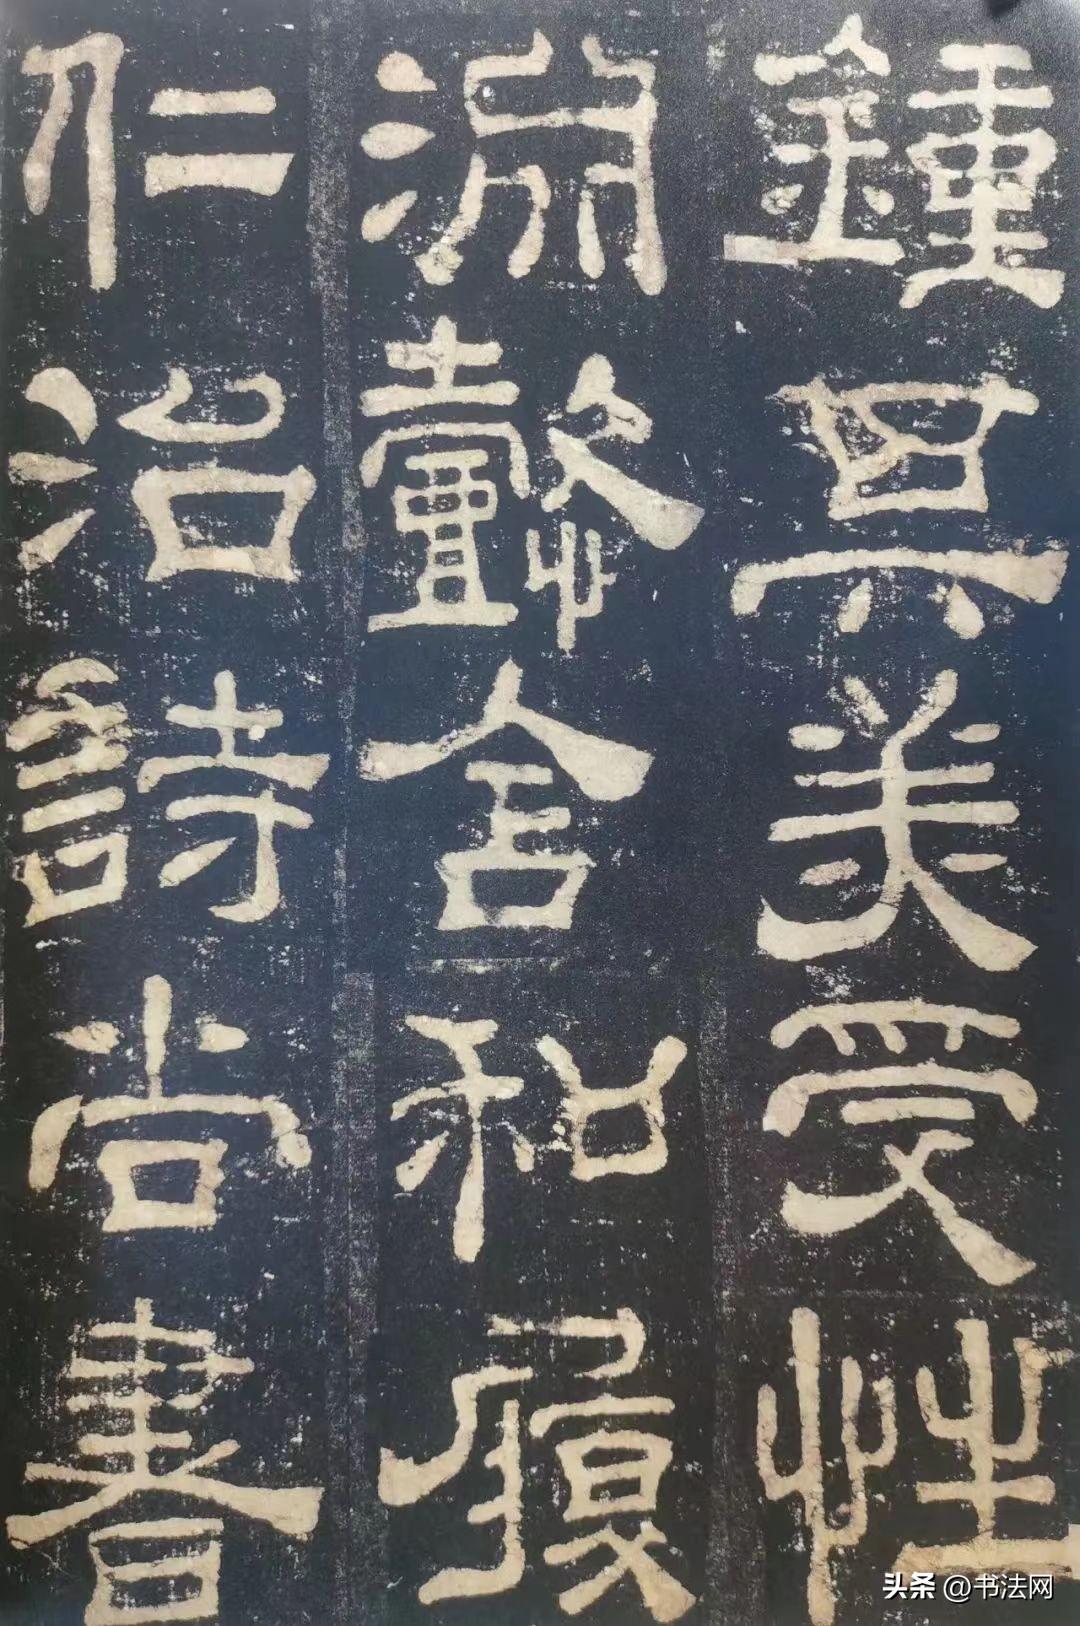 鍾其美受性
淵懿含和履
仁治詩尚書
头条 @书法网